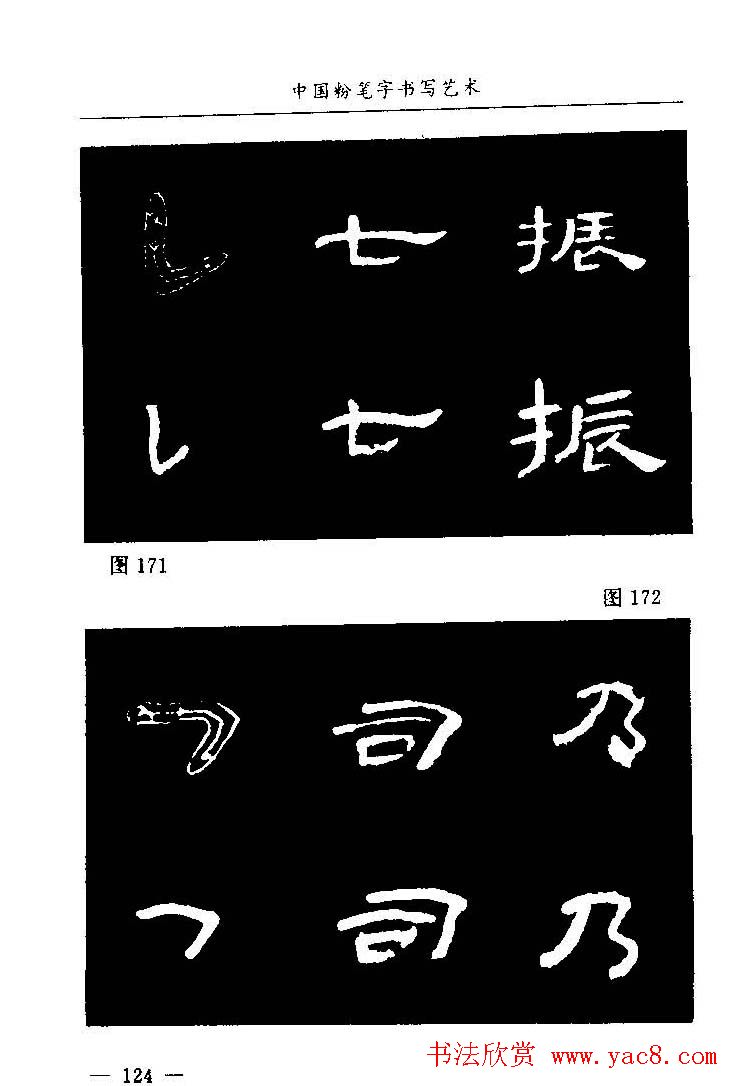 中国粉笔字书写艺术
七 振
七 振
图 171
图 172
司 乃
司 乃
— 124 —
书法欣赏 www.yac8.com